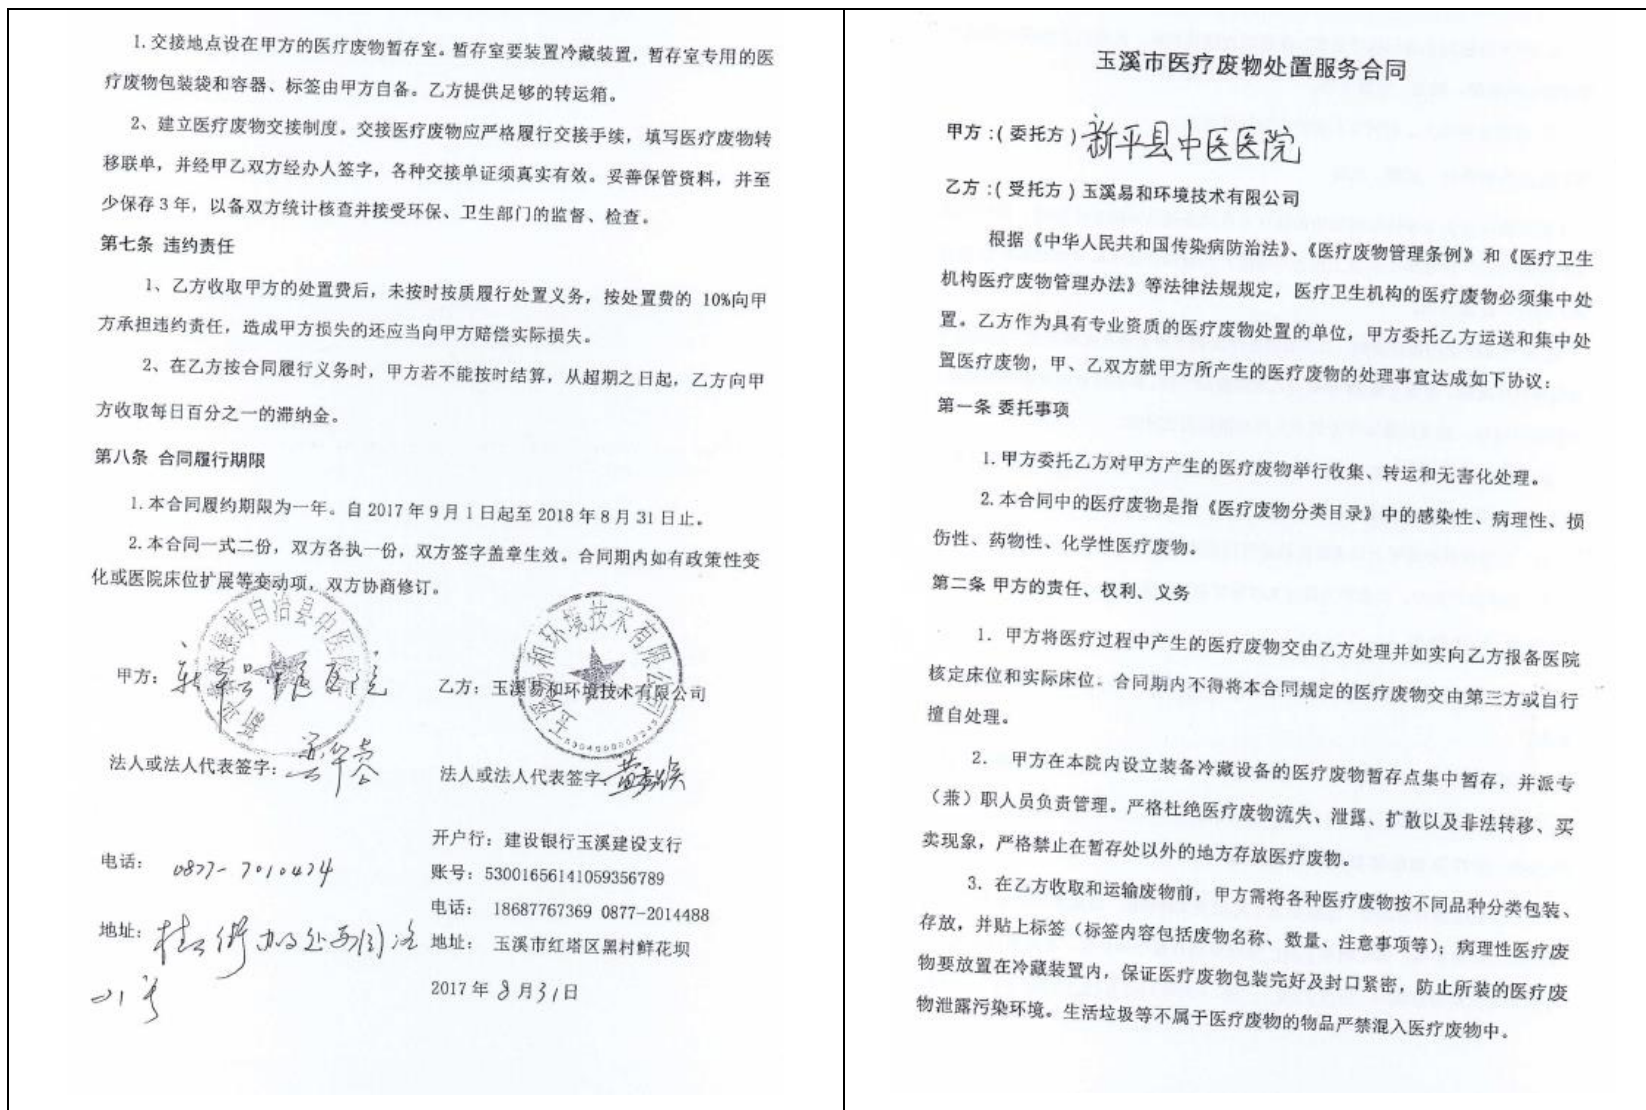 1.交接地点设在甲方的医疗废物暂存室。暂存室要装置冷藏装置，暂存室专用的医
疗废物包装袋和容器、标签由甲方自备。乙方提供足够的转运箱。
2、建立医疗废物交接制度。交接医疗废物应严格履行交接手续，填写医疗废物转
移联单，并经甲乙双方经办人签字，各种交接单证须真实有效。妥善保管资料，并至
少保存3年，以备双方统计核查并接受环保、卫生部门的监督、检查。
第七条 违约责任
1、乙方收取甲方的处置费后，未按时按质履行处置义务，按处置费的 10%向甲
方承担违约责任，造成甲方损失的还应当向甲方赔偿实际损失。
2、在乙方按合同履行义务时，甲方若不能按时结算，从超期之日起，乙方向甲
方收取每日百分之一的滞纳金。
第八条 合同履行期限
1.本合同履约期限为一年。自2017年9月1日起至2018年8月31日止。
2.本合同一式二份，双方各执一份，双方签字盖章生效。合同期内如有政策性变
化或医院床位扩展等变动项，双方协商修订。
甲方：新平县中医医院
乙方：玉溪易和环境技术有限公司
法人或法人代表签字：
法人或法人代表签字：
开户行：建设银行玉溪建设支行
电话： 0877-7010474
账号：53001656141059356789
电话： 18687767369 0877-2014488
地址：桂山街办
地址： 玉溪市红塔区黑村鲜花坝
2017年8月31日
玉溪市医疗废物处置服务合同
甲方：(委托方) 新平县中医医院
乙方：(受托方) 玉溪易和环境技术有限公司
根据《中华人民共和国传染病防治法》、《医疗废物管理条例》和《医疗卫生
机构医疗废物管理办法》等法律法规规定，医疗卫生机构的医疗废物必须集中处
置。乙方作为具有专业资质的医疗废物处置的单位，甲方委托乙方运送和集中处
置医疗废物，甲、乙双方就甲方所产生的医疗废物的处理事宜达成如下协议：
第一条 委托事项
1.甲方委托乙方对甲方产生的医疗废物举行收集、转运和无害化处理。
2.本合同中的医疗废物是指《医疗废物分类目录》中的感染性、病理性、损
伤性、药物性、化学性医疗废物。
第二条 甲方的责任、权利、义务
1. 甲方将医疗过程中产生的医疗废物交由乙方处理并如实向乙方报备医院
核定床位和实际床位。合同期内不得将本合同规定的医疗废物交由第三方或自行
擅自处理。
2. 甲方在本院内设立装备冷藏设备的医疗废物暂存点集中暂存，并派专
（兼）职人员负责管理。严格杜绝医疗废物流失、泄露、扩散以及非法转移、买
卖现象，严格禁止在暂存处以外的地方存放医疗废物。
3．在乙方收取和运输废物前，甲方需将各种医疗废物按不同品种分类包装、
存放，并贴上标签（标签内容包括废物名称、数量、注意事项等）；病理性医疗废
物要放置在冷藏装置内，保证医疗废物包装完好及封口紧密，防止所装的医疗废
物泄露污染环境。生活垃圾等不属于医疗废物的物品严禁混入医疗废物中。